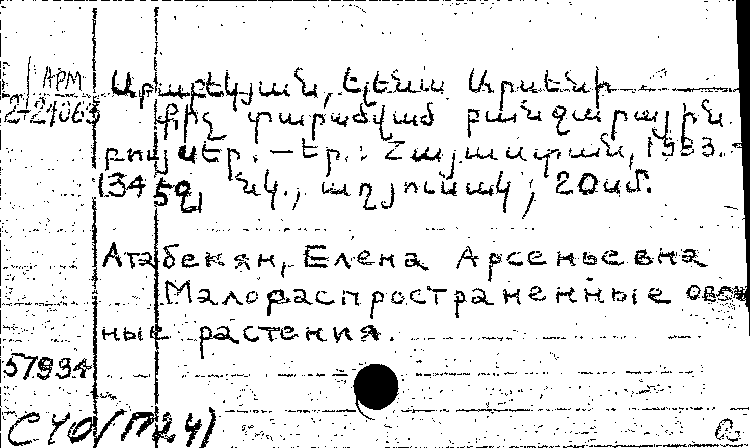 АРМ
2-21063
Աթաբեկյան, Ելենա Արսենի
Քիչ տարածված բանջարային
բույսեր. — Եր.: Հայաստան, 1983. -
134 էջ, նկ., աղյուսակ; 20 սմ.
Атабекян, Елена Арсеньевна
Малораспространенные овощ
ные растения.
57934
С40(П24)